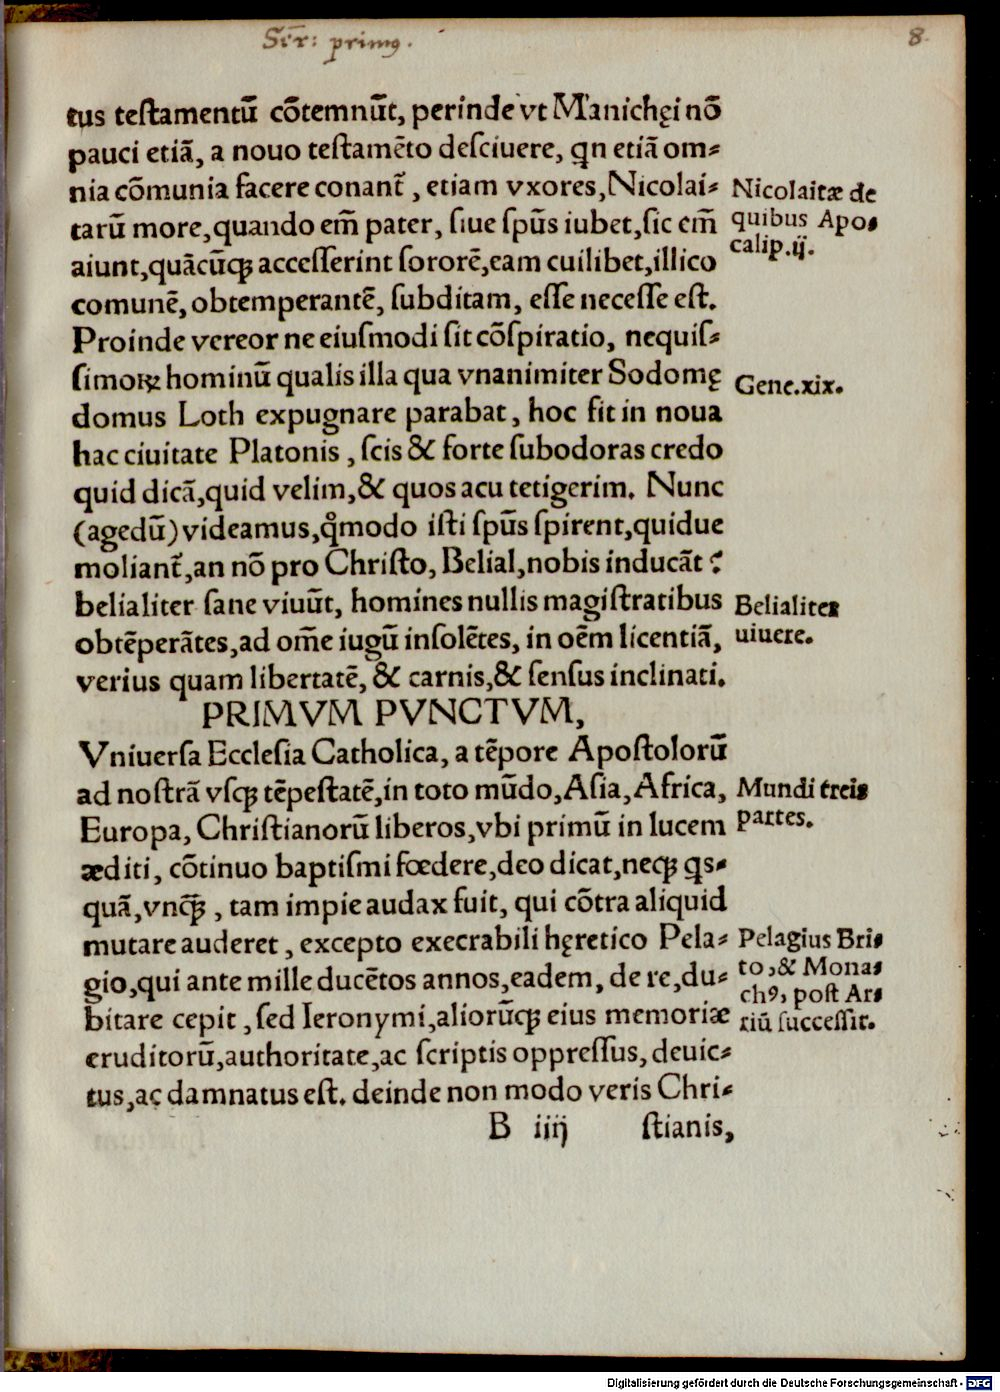 Sẽr: primꝰ. 8.
tus teſtamentũ cõtemnũt, perinde vt Manichęi nõ
pauci etiã, a nouo teſtamẽto deſciuere, qn etiã om⸗
nia cõmunia facere conant̃, etiam vxores, Nicolai⸗
tarũ more, quando em̃ pater, ſiue ſpũs iubet, ſic em̃
aiunt, quãcũqꝫ acceſſerint ſororẽ, eam cuilibet, illico
comunẽ, obtemperantẽ, ſubditam, eſſe neceſſe eſt.
Proinde vereor ne eiuſmodi ſit cõſpiratio, nequiſ⸗
ſimoꝝ hominũ qualis illa qua vnanimiter Sodomę
domus Loth expugnare parabat, hoc fit in noua
hac ciuitate Platonis, ſcis & forte ſubodoras credo
quid dicã, quid velim, & quos acu tetigerim. Nunc
(agedũ) videamus, qͦmodo iſti ſpũs ſpirent, quidue
moliant̃, an nõ pro Chriſto, Belial, nobis inducãt?
belialiter ſane viuũt, homines nullis magiſtratibus
obtẽperãtes, ad om̃e iugũ inſolẽtes, in oẽm licentiã,
verius quam libertatẽ, & carnis, & ſenſus inclinati.
PRIMVM PVNCTVM,
Vniuerſa Eccleſia Catholica, a tẽpore Apoſtolorũ
ad noſtrã vſqꝫ tẽpeſtatẽ, in toto mũdo, Aſia, Africa,
Europa, Chriſtianorũ liberos, vbi primũ in lucem
æditi, cõtinuo baptiſmi fœdere, deo dicat, neqꝫ qs⸗
quã, vnq̃ꝫ, tam impie audax fuit, qui cõtra aliquid
mutare auderet, excepto execrabili hęretico Pela⸗
gio, qui ante mille ducẽtos annos, eadem, de re, du⸗
bitare cepit, ſed Ieronymi, aliorũqꝫ eius memoriæ
eruditorũ, authoritate, ac ſcriptis oppreſſus, deuic⸗
tus, ac damnatus eſt. deinde non modo veris Chri⸗
B iiij ſtianis,
Nicolaitæ de
quibus Apo⸗
calip.ij.
Gene.xix.
Belialiter
uiuere.
Mundi treis
partes.
Pelagius Bri⸗
to, & Mona⸗
chꝰ, poſt Ar⸗
riũ ſucceſſit.
Digitalisierung gefördert durch die Deutsche Forschungsgemeinschaft - DFG